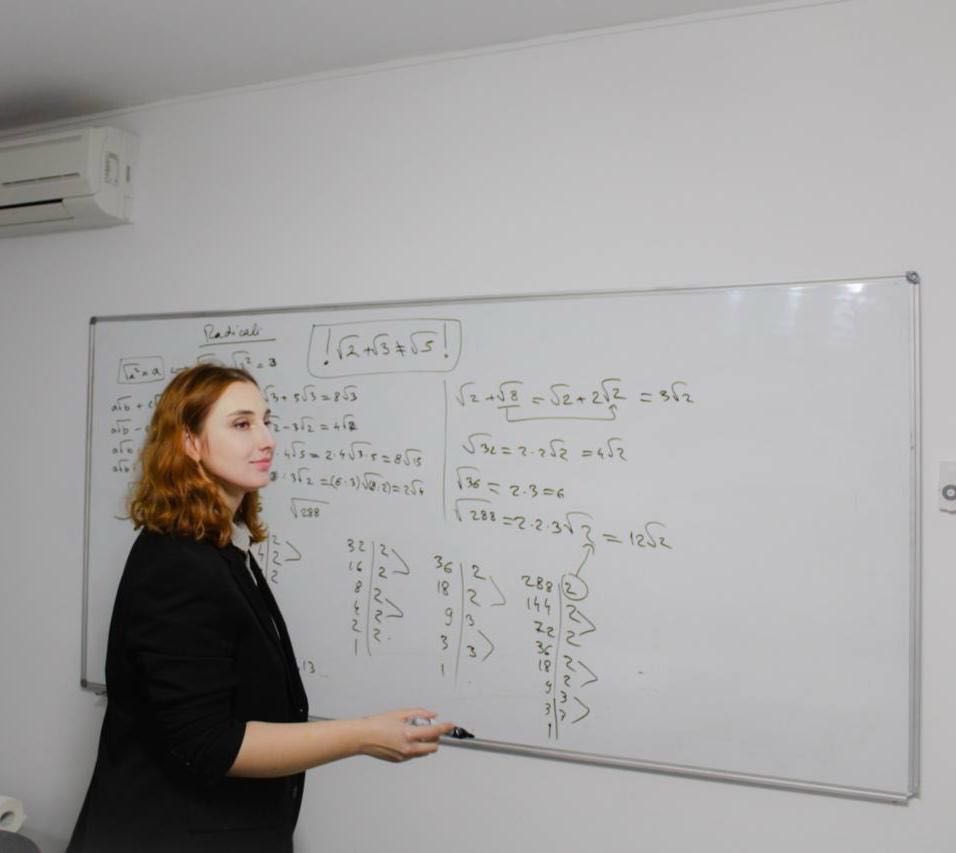 Radicali
! √2 + √3 ≠ √5 !
√a² = a
√3² = 3
a√b +
√3 + 5√3 = 8√3
a√b -
√2 - 3√2 = 4√2
a√b
4√5 = 2·4√3·5 = 8√15
a√b
· 3√2 = (6:3)√(8·2) = 2√4
√288
√2 + √8 = √2 + 2√2 = 3√2
√32 = 2·2√2 = 4√2
√36 = 2·3 = 6
√288 = 2·2·3√2 = 12√2
4 | 2
2
2
32 | 2
16 | 2
8 | 2
4 | 2
2 | 2
1
36 | 2
18 | 2
9 | 3
3 | 3
1
288 | 2
144 | 2
72 | 2
36 | 2
18 | 2
9 | 3
3 | 3
1
13